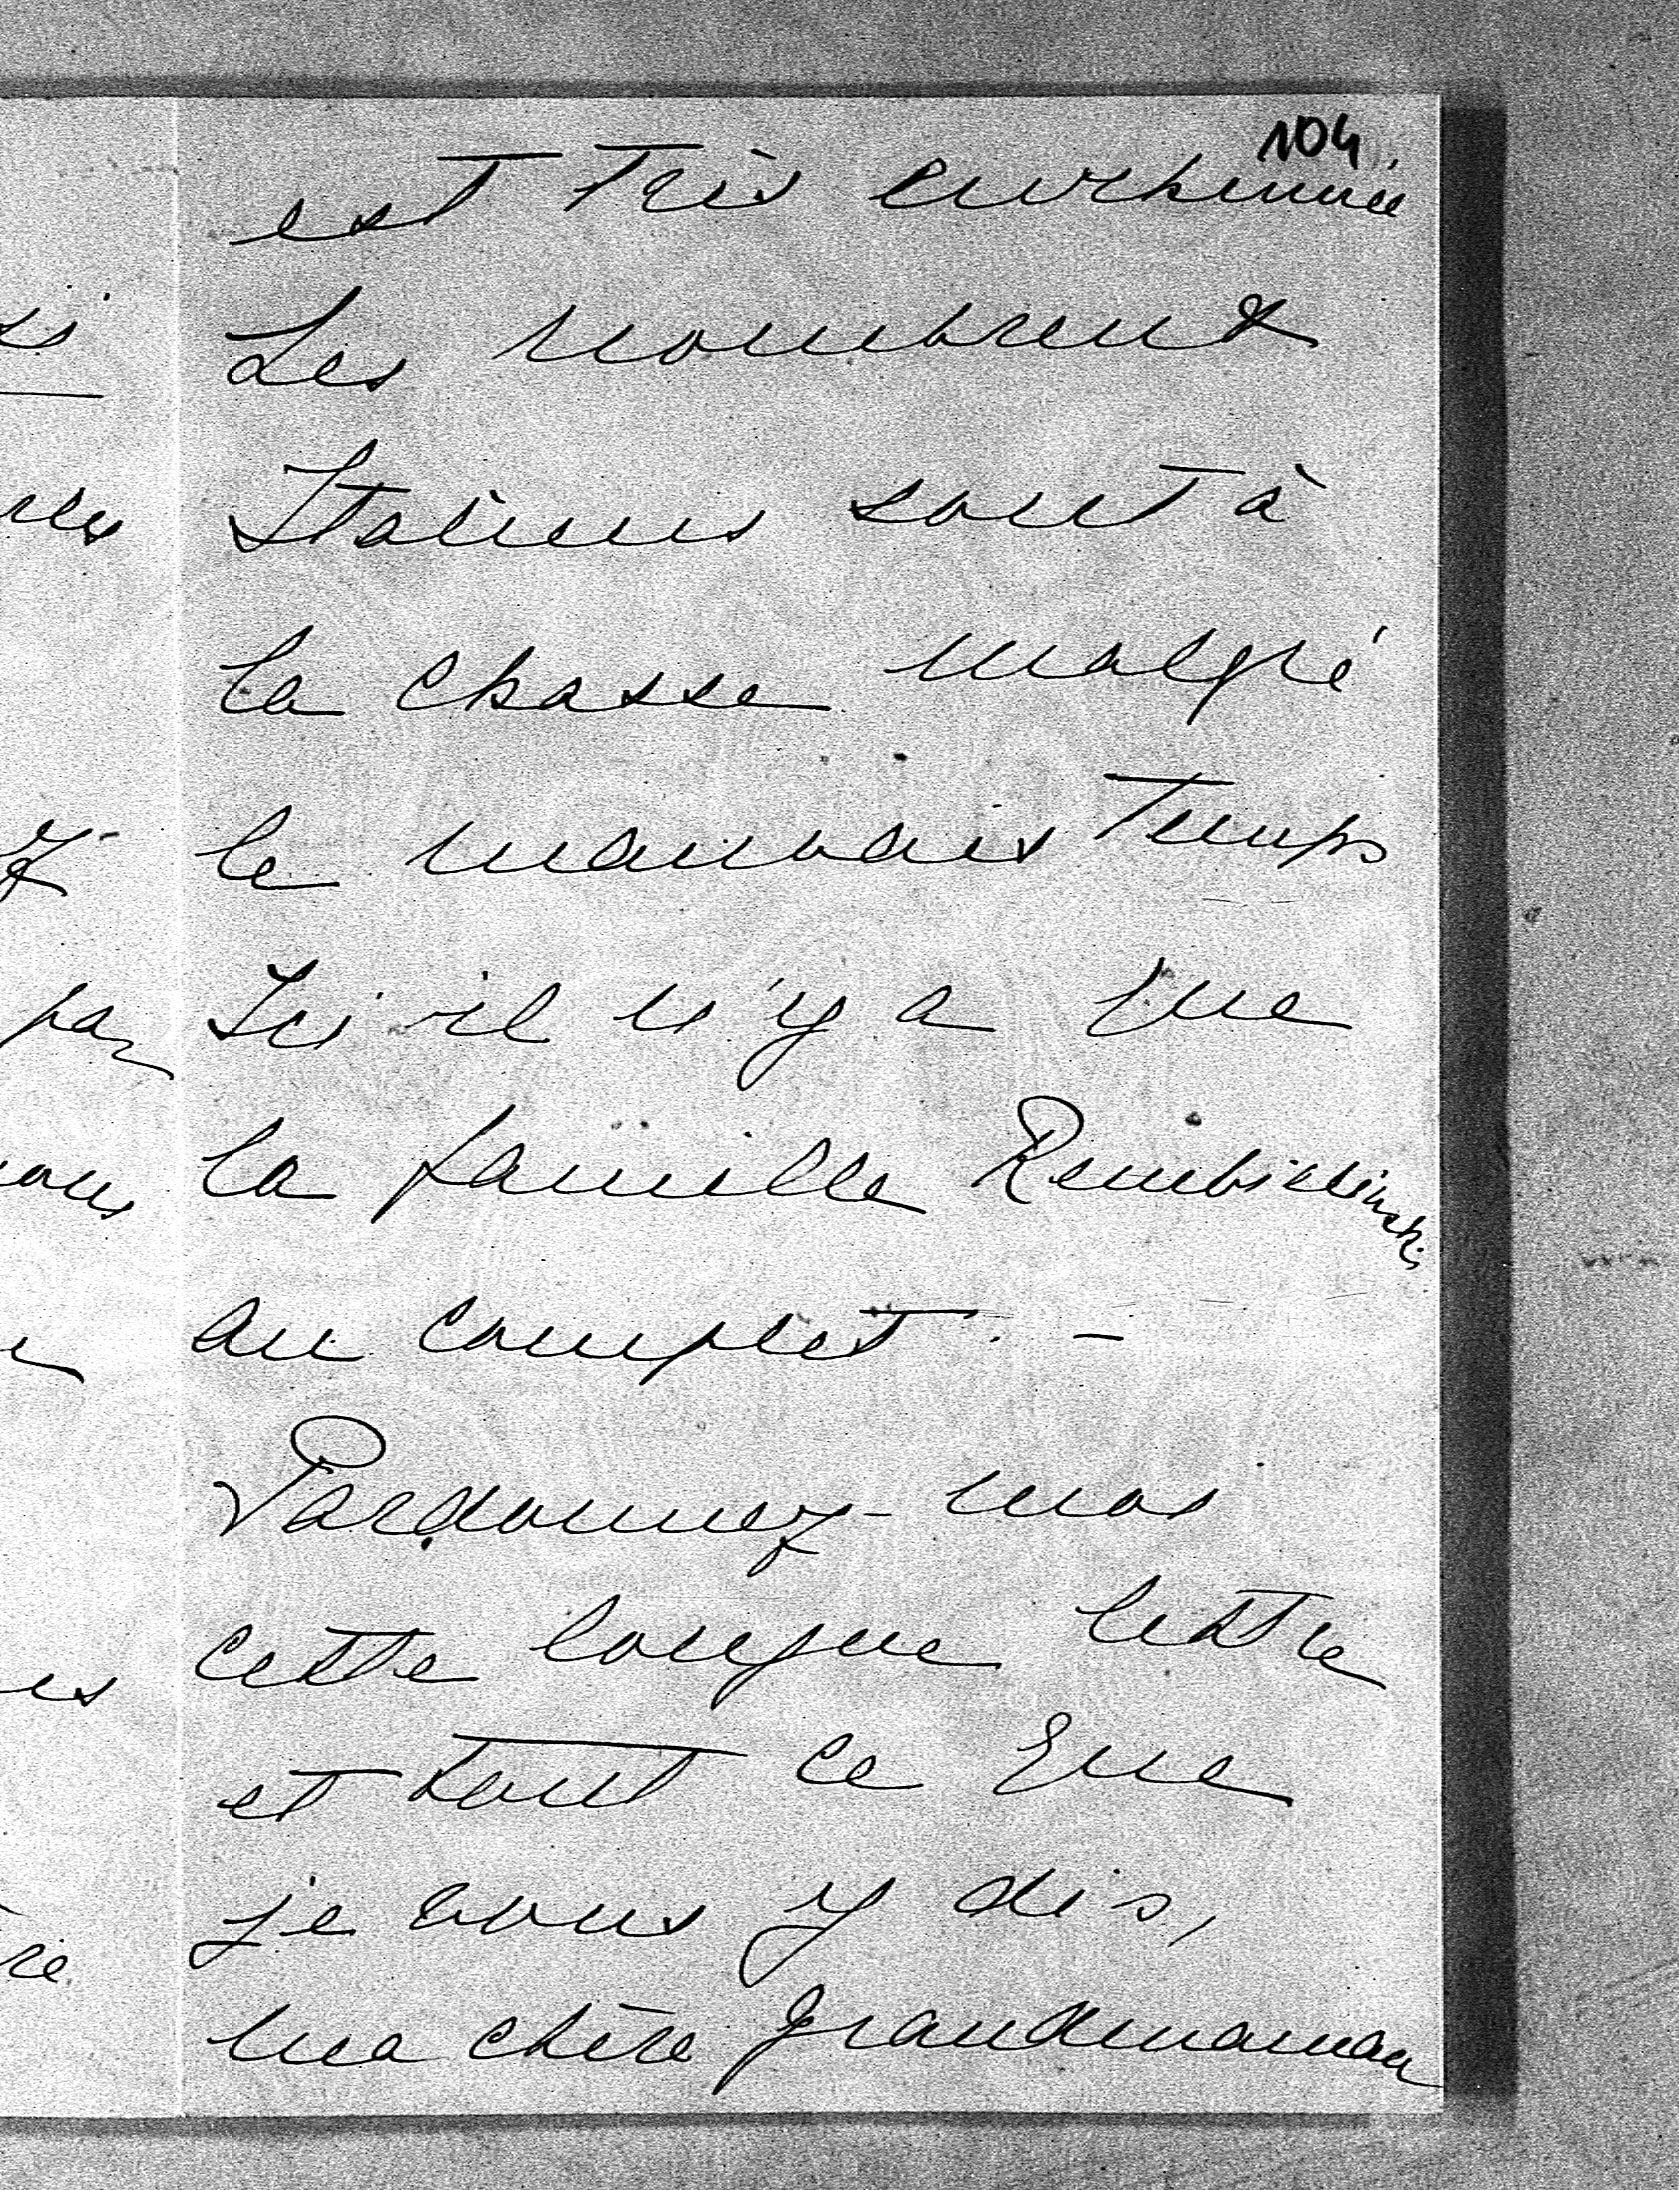 104
est très enrhumée
Les nombreux
Italiens sont à
la chasse malgré
le mauvais temps
Ici il n'y a que
la famille Rembielinski
au complet. —
Pardonnez-moi
cette longue lettre
et tout ce que
je vous y dis,
ma chère Grandmaman